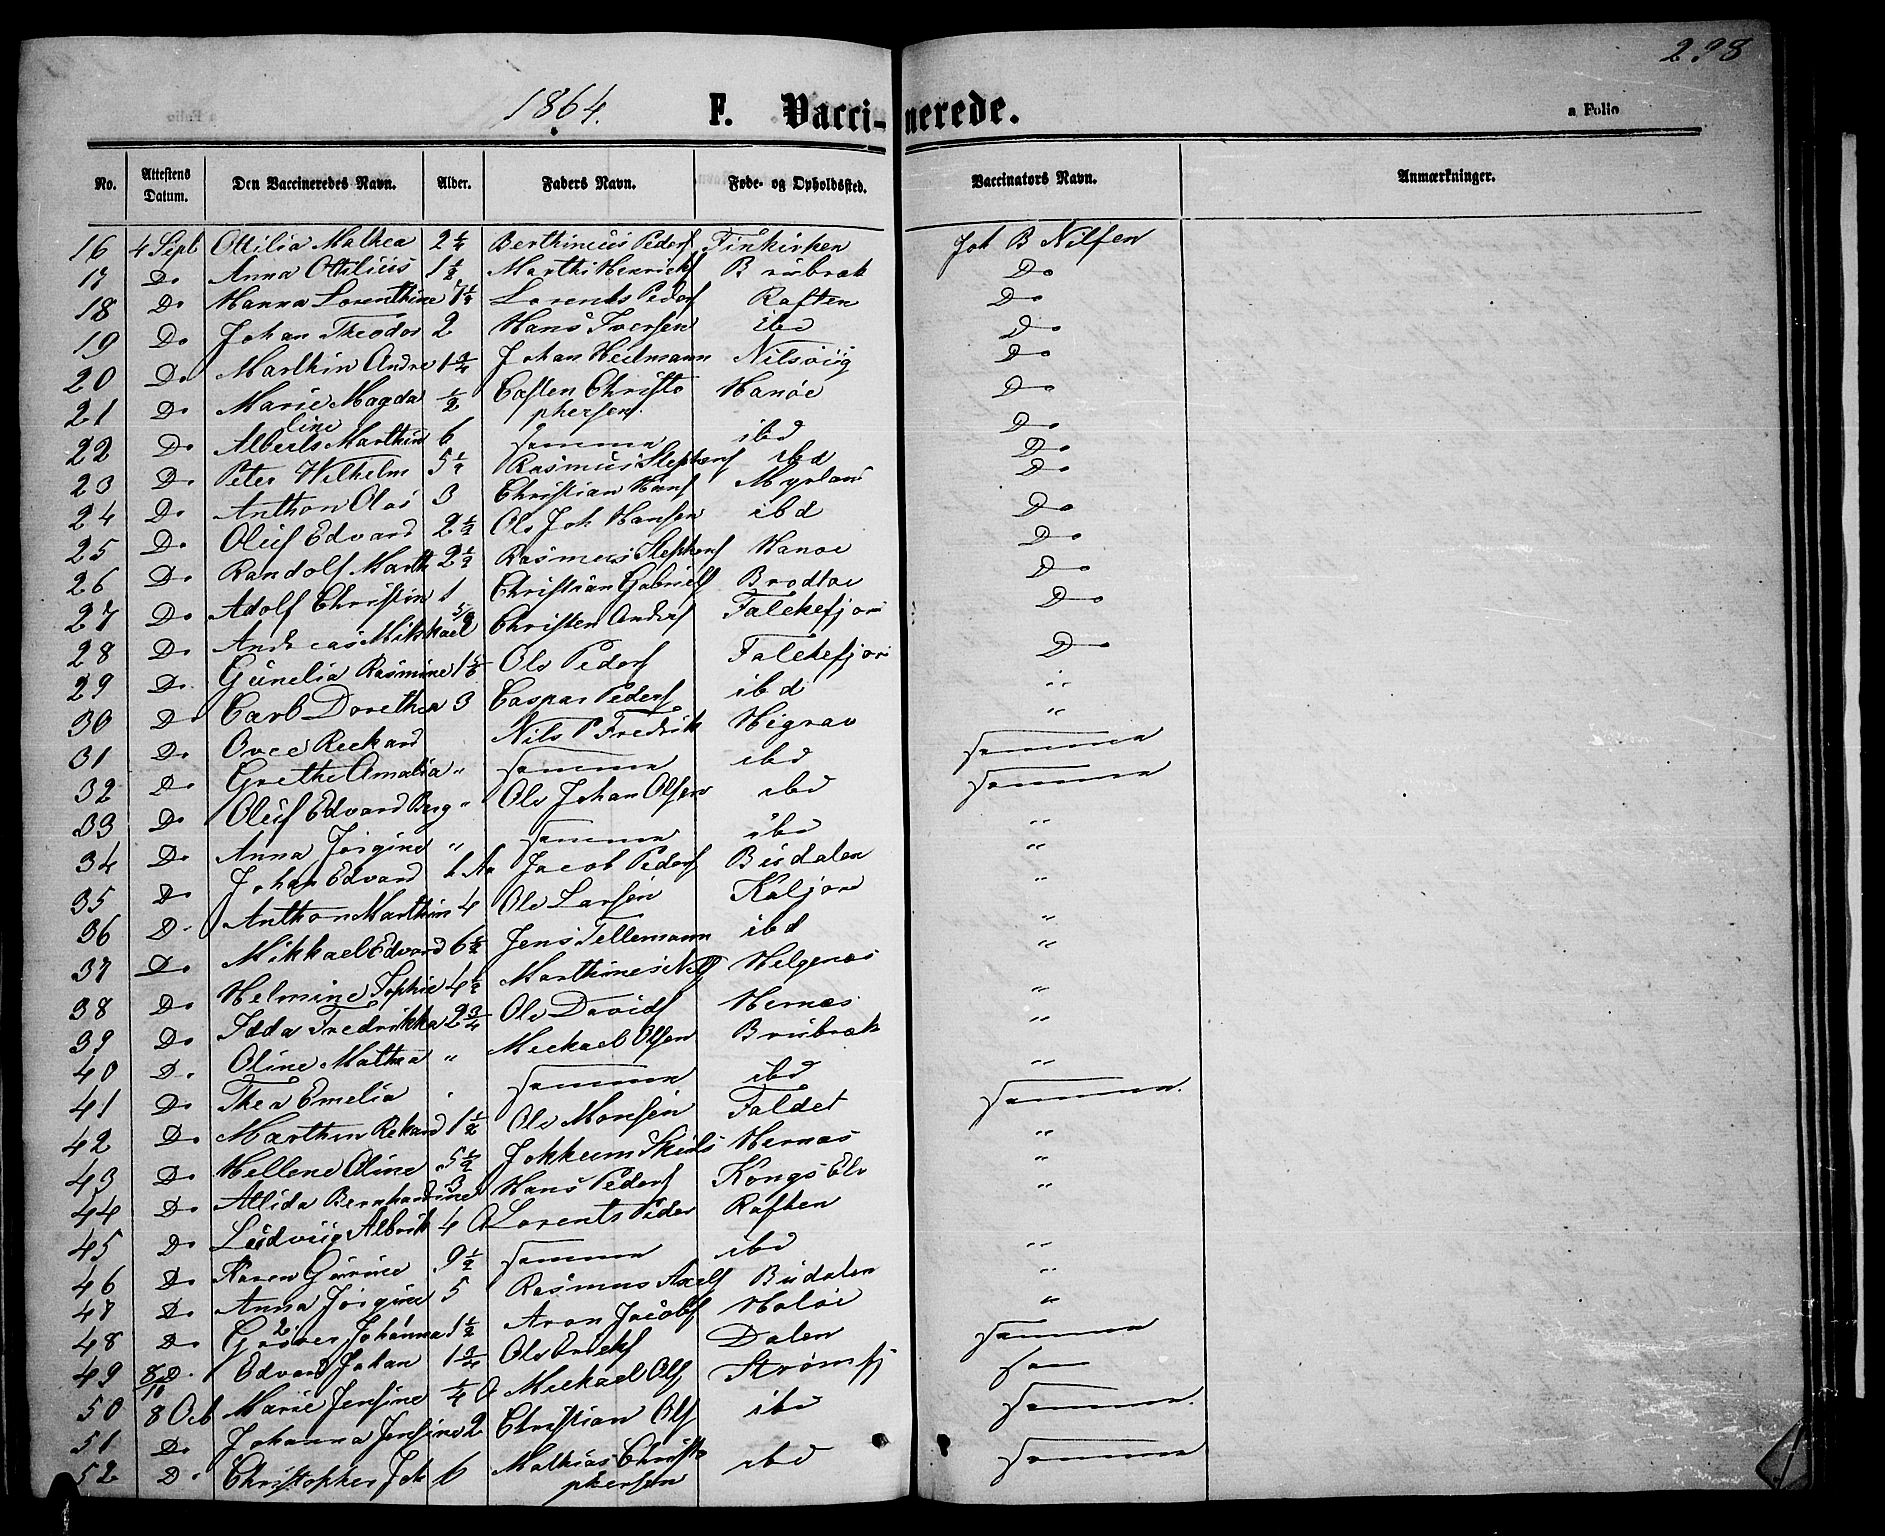 298
1864.
F. Vacci-nerede.
a Folio
No. Attestens Datum. Den Vaccineredes Navn. Alder. Faders Navn. Føde- og Opholdssted. Vaccinators Navn. Anmærkninger.
16 4 Sept Ottilia Mathea 2 1/4 Berthineus Peders Finkirken Joh B Nilsen
17 Do Anna Ottilius 1 1/2 Marthi Henricks Brubræk Do
18 Do Hanna Lorenthine 1 1/4 Lorents Peders Raften Do
19 Do Johan Theodor 2 Hans Iversen ibd Do
20 Do Marthin Andre 1 3/4 Johan Heilmann Nilsviig Do
21 Do Marie Magda 1/2 Casten Christo Hanøe Do
line phersen.
22 Do Alberts Marthin 6 samme ibd Do
23 Do Peter Wilhelm 5 1/2 Rasmus Stephens ibd Do
24 Do Anthon Olai 3 Christian Hans Myrland Do
25 Do Oluf Edvard 2 1/2 Ole Joh Hansen ibd Do
26 Do Randolf Marth 2 1/2 Rasmus Stephens Hanøe Do
27 Do Adolf Christin 1 Christian Gabriels Brodtøe Do
28 Do Andreas Mikkael Christen Anders Falckefjor Do
29 Do Gunelia Rasmine Ole Peders Falckefjor Do
30 Do Carb Dorethea 3 Caspar Peders ibd "
31 Do Ovee Reekard Nils P Fredrik Higrav "
32 Do Grethe Amalia " samme ibd samme
33 Do Oluf Edvard Berg " Ole Johan Olsen ibd samme
34 Do Anna Jørgine " samme ibd "
35 Do Johan Edvard 1 Aa Jacob Peders Budalen "
36 Do Anthon Marthin 4 Ole Larsen Kaljord "
37 Do Mikkael Edvard 6 1/2 Jens Tellemann ibd "
38 Do Helmine Sophie 4 1/2 Marthines Nils Helgenæs "
39 Do Idda Fredrikka 2 3/4 Ole Davids Hernæs "
40 Do Oline Mathea " Mickael Olsen Brubræk "
41 Do Thea Emelia " samme ibd "
42 Do Marthin Rekard 1 1/2 Ole Monsen Faldet samme.
43 Do Hellene Oline 5 1/2 Jokkum Skeils Hernæs "
44 Do Allida Bernhardine 3 Hans Peders Kongs Elv "
45 Do Ludviig Albrik 4 A Lorents Peder Raften "
46 Do Karen Gurine 9 1/2 samme ibd "
47 Do Anna Jørgine 5 Rasmus Axels Budalen "
48 Do Johanna 1 1/2 Aron Jacobs Holøe "
49 8/10 D. Edvard Johan 1 3/4 Ole Ericks Dalen samme
50 8 Oct Marie Jensine 1/4 A Mickael Ols Strømfj sam
51 Do Johanna Jensine 2 Christian Ols ibd samme.
52 D. Christopher Joh 6 Mathias Christo ibd samme
phersen